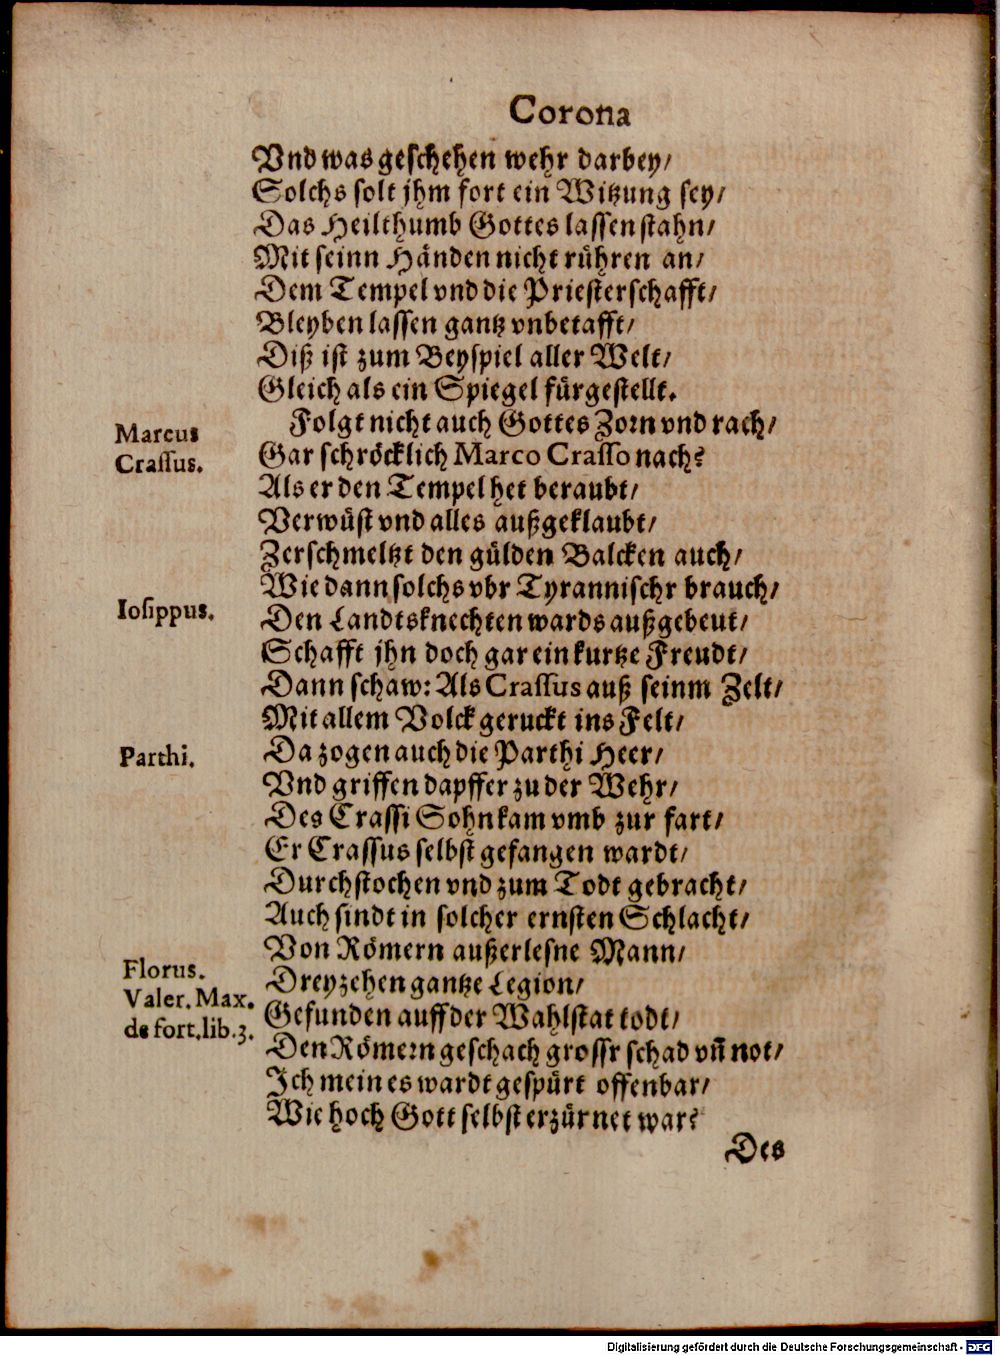 Corona
Vnd was geschehen wehr darbey/
Solchs solt jhm fort ein Witzung sey/
Das Heilthumb Gottes lassen stahn/
Mit seinn Händen nicht rühren an/
Dem Tempel vnd die Priesterschafft/
Bleyben lassen gantz vnbetafft/
Diß ist zum Beyspiel aller Welt/
Gleich als ein Spiegel fürgestellt.
Marcus
Crassus.
Folgt nicht auch Gottes Zorn vnd rach/
Gar schröcklich Marco Crasso nach?
Als er den Tempel het beraubt/
Verwüst vnd alles außgeklaubt/
Zerschmeltzt den gülden Balcken auch/
Wie dann solchs vbr Tyrannischr brauch/
Iosippus.
Den Landtsknechten wards außgebeut/
Schafft jhn doch gar ein kurtze Freudt/
Dann schaw: Als Crassus auß seinm Zelt/
Mit allem Volck geruckt ins Felt/
Parthi.
Da zogen auch die Parthi Heer/
Vnd griffen dapffer zu der Wehr/
Des Crassi Sohn kam vmb zur fart/
Er Crassus selbst gefangen wardt/
Durchstochen vnd zum Todt gebracht/
Auch sindt in solcher ernsten Schlacht/
Von Römern außerlesne Mann/
Florus.
Valer. Max.
de fort. lib. 3.
Dreyzehen gantze Legion/
Gefunden auff der Wahlstat todt/
Den Römern geschach grossr schad vn̄ not/
Ich mein es wardt gespürt offenbar/
Wie hoch Gott selbst erzürnet war?
Des
Digitalisierung gefördert durch die Deutsche Forschungsgemeinschaft - DFG